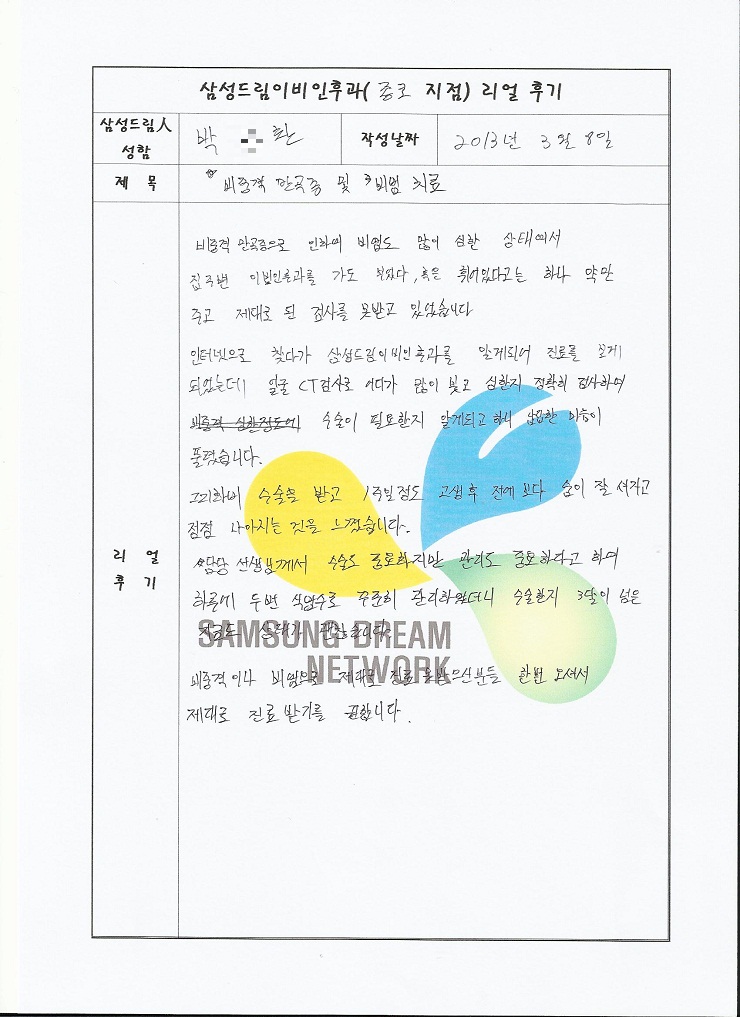 삼성드림이비인후과( 종로 지점) 리얼 후기
삼성드림人 성함
박 환
작성날짜
2013년 3월 8일
제 목
비중격 만곡증 및 비염 치료
리 얼 후 기
비중격 만곡증으로 인하여 비염도 많이 심한 상태에서
집주변 이비인후과를 가도 부었다, 혹은 휘어있다고는 하나 약만
주고 제대로 된 검사를 못받고 있었습니다
인터넷으로 찾다가 삼성드림이비인후과를 알게되어 진료를 보게
되었는데 얼굴 CT검사로 어디가 많이 붓고 심한지 정확히 검사하여
비중격 심한정도에 수술이 필요한지 알게되고 하니 답답한 마음이
풀렸습니다.
그리하여 수술을 받고 1주일정도 고생후 전에 보다 숨이 잘 쉬지고
점점 나아지는 것을 느꼈습니다.
담당 선생님께서 수술도 중요하지만 관리도 중요하다고 하여
하루에 두번 식염수로 꾸준히 관리하였더니 수술한지 3달이 넘은
지금도 상태가 괜찮습니다.
비중격이나 비염으로 제대로 진료 못받으신분들 한번 오셔서
제대로 진료 받기를 권합니다.
SAMSUNG DREAM
NETWORK